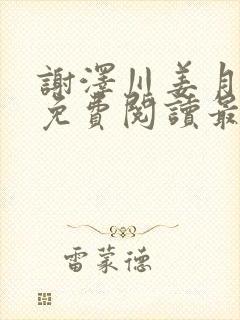 謝澤川姜月
免費閱讀最
雷蒙德